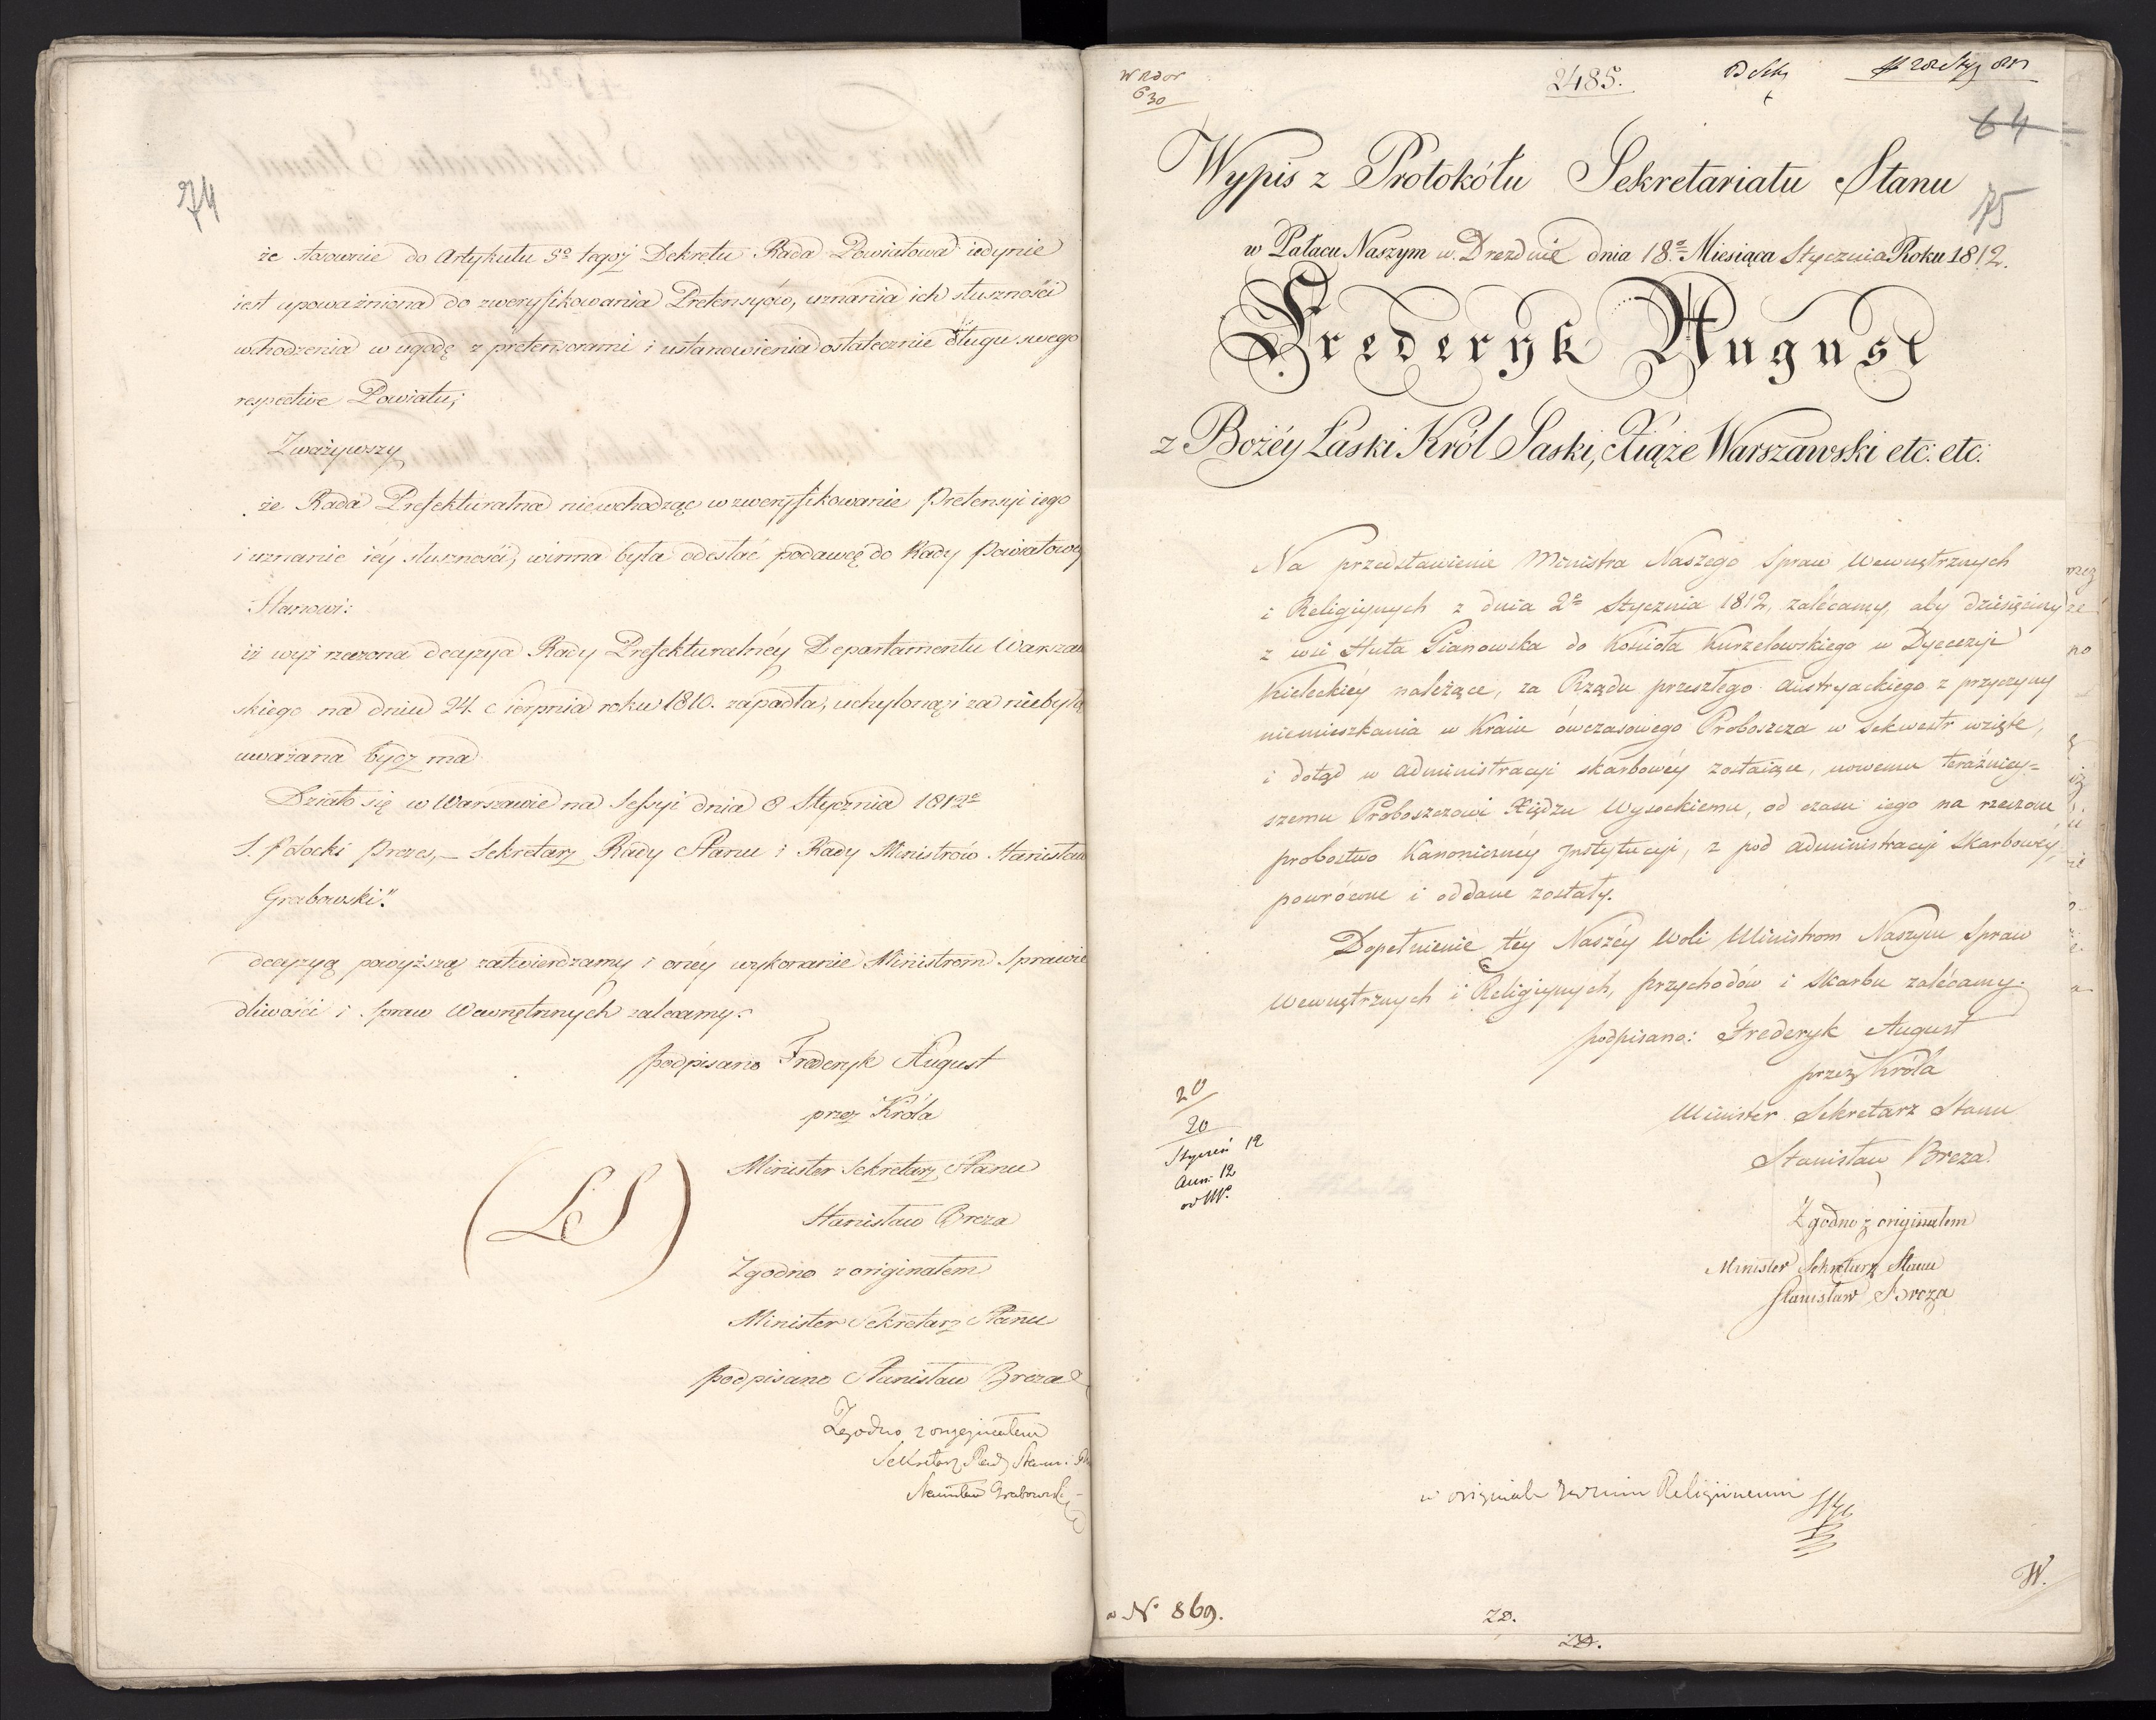 74
że stosownie do Artykułu 5º tegoż Dekretu Rada Powiatowa iedynie
iest upoważniona do zweryfikowania Pretensyów, uznania ich słuszności
wchodzenia w ugodę z pretensorami i ustanowienia ostatecznie długu swego
respective Powiatu;
Zważywszy
że Rada Prefekturalna niewchodząc w zweryfikowanie Pretensyi iego
i uznanie iéy słuszności, winna była odesłać podawcę do Rady Powiatowéy
Stanowi:
iż wyż rzeczona decyzya Rady Prefekturalnéy Departamentu Warszaw
skiego na dniu 24. Sierpnia roku 1810. zapadła, uchyloną i za niebyłą
uważana bydź ma
Działo się w Warszawie na Sessyi dnia 8 Stycznia 1812º
S. Potocki Prezes, – Sekretarz Rady Stanu i Rady Ministrów Stanisław
Grabowski".
decyzyą powyższą zatwierdzamy i onéy wykonanie Ministrom Sprawie
dliwości i Spraw Wewnętrznych zalecamy.
podpisano Frederyk August
przez Króla
Minister Sekretarz Stanu
(LS)
Stanisław Breza
Zgodno z originałem
Minister Sekretarz Stanu
podpisano Stanisław Breza
Zgodno z originałem
Sekretarz Rady Stanu i
Stanisław Grabowski
630
2485.
64
75
Wypis z Protokółu Sekretariatu Stanu
w Pałacu Naszym w Dreźnie dnia 18º Miesiąca Stycznia Roku 1812.
Frederyk August
z Bożéy Łaski Król Saski, Xiąże Warszawski etc: etc:
Na przedstawienie Ministra Naszego Spraw Wewnętrznych
i Religiynych z dnia 2º Stycznia 1812, zalécamy, aby dziesięciny
z wsi Huta Pianowska do Kościoła Kurzelowskiego w Dyecezyi
Kieleckiéy należące, za Rządu przeszłego Austryackiego z przyczyny
niemieszkania w Kraiu ówczasowego Proboszcza w sekwestr wzięte,
i dotąd w Administracyi skarbowéy zostaiące, nowemu teraźniey=
szemu Proboszczowi Xiędzu Wysockiemu, od czasu iego na rzeczone
probostwo Kanoniczney Jnstytucyi, z pod administracyi Skarbowéy,
powrócone i oddane zostały.
Dopełnienie téy Naszéy Woli Ministrom Naszym Spraw
Wewnętrznych i Religiynych, Przychodów i Skarbu zalécamy.
podpisano: Frederyk August
przez Króla
Minister Sekretarz Stanu
Stanisław Breza.
20
20
Styczeń 12
Zgodno z originałem
Minister Sekretarz Stanu
Stanisław Breza
W.
Nº 869.